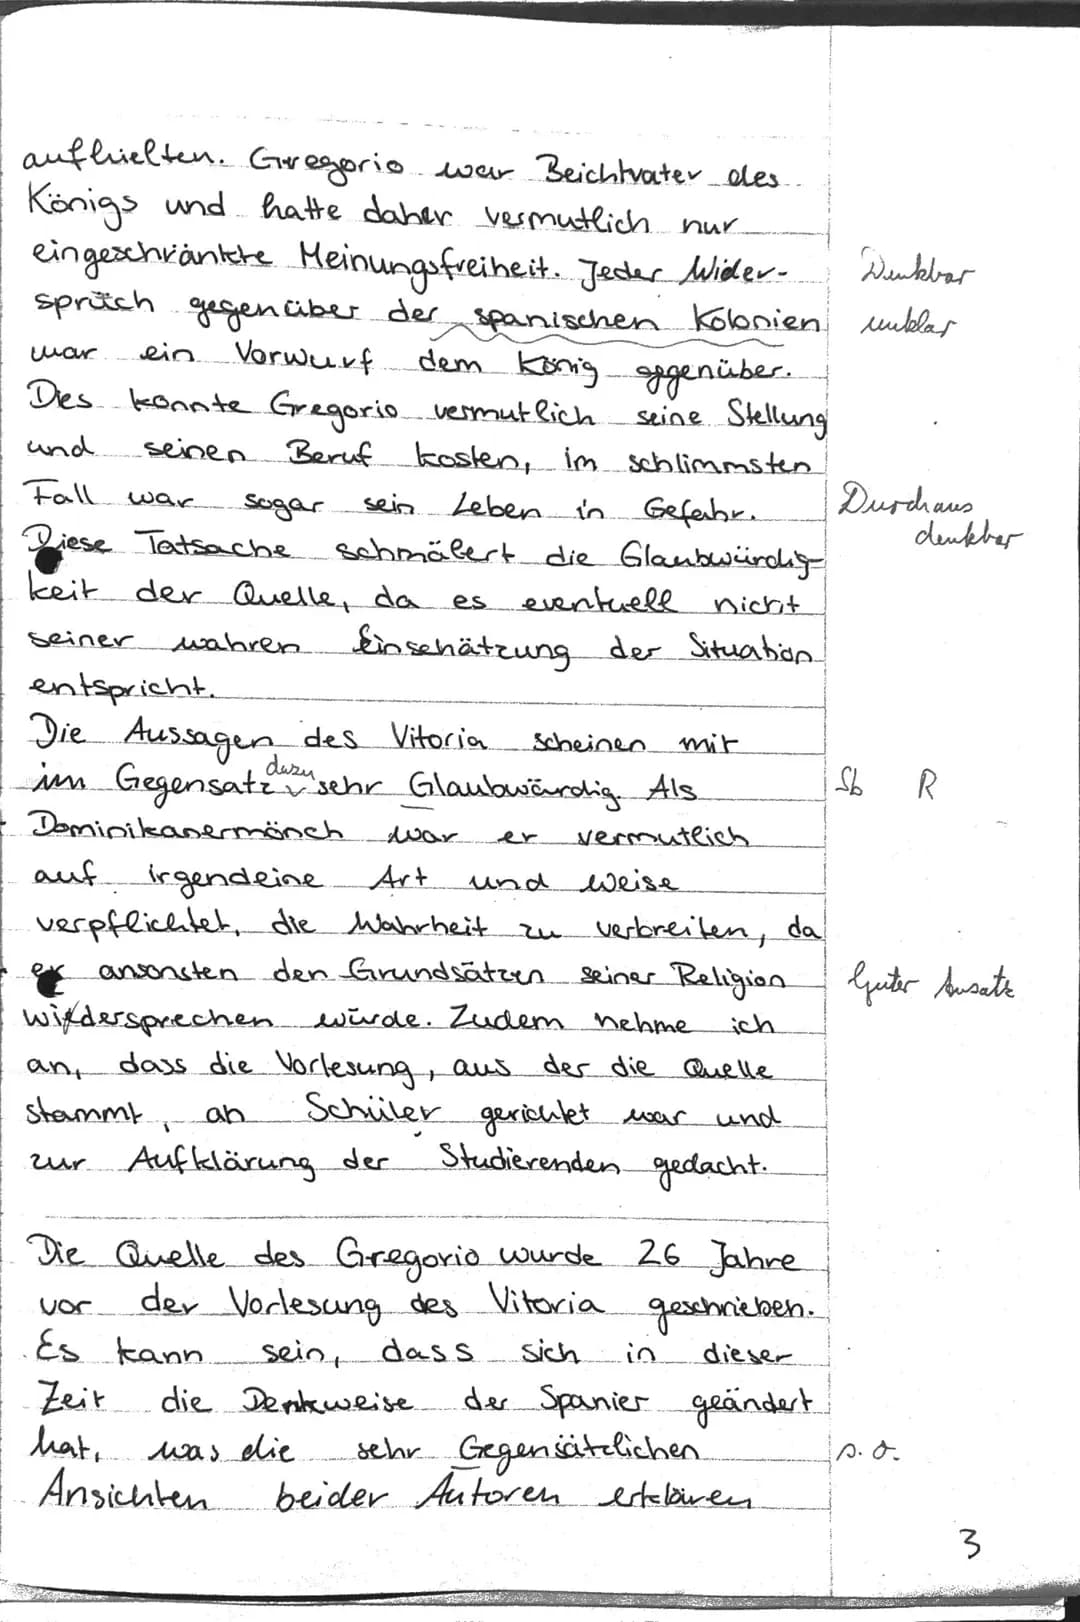 aufhielten. Gregorio war Beichtvater des
Königs und hatte daher vermutlich nur
eingeschränkte Meinungsfreiheit. Jeder Wider- Denkbar
spruch gegenüber der spanischen Kolonien unklar
war ein Vorwurf dem König gegenüber.
Dies konnte Gregorio vermutlich seine Stellung
und seinen Beruf kosten, im schlimmsten
Fall war sogar sein Leben in Gefahr. Durchaus
denkbar
Diese Tatsache schmälert die Glaubwürdig-
keit der Quelle, da es eventuell nicht
seiner wahren Einschätzung der Situation
entspricht.
Die Aussagen des Vitoria scheinen mir
im Gegensatz dazu sehr Glaubwürdig. Als Sb R
Dominikanermönch war er vermutlich
auf irgendeine Art und Weise
verpflichtet, die Wahrheit zu verbreiten, da
er ansonsten den Grundsätzen seiner Religion Guter Ansatz
widersprechen würde. Zudem nehme ich
an, dass die Vorlesung, aus der die Quelle
stammt, an Schüler gerichtet war und
zur Aufklärung der Studierenden gedacht.
Die Quelle des Gregorio wurde 26 Jahre
vor der Vorlesung des Vitoria geschrieben.
Es kann sein, dass sich in dieser
Zeit die Denkweise der Spanier geändert
hat, was die sehr Gegensätzlichen s.o.
Ansichten beider Autoren erklären
3